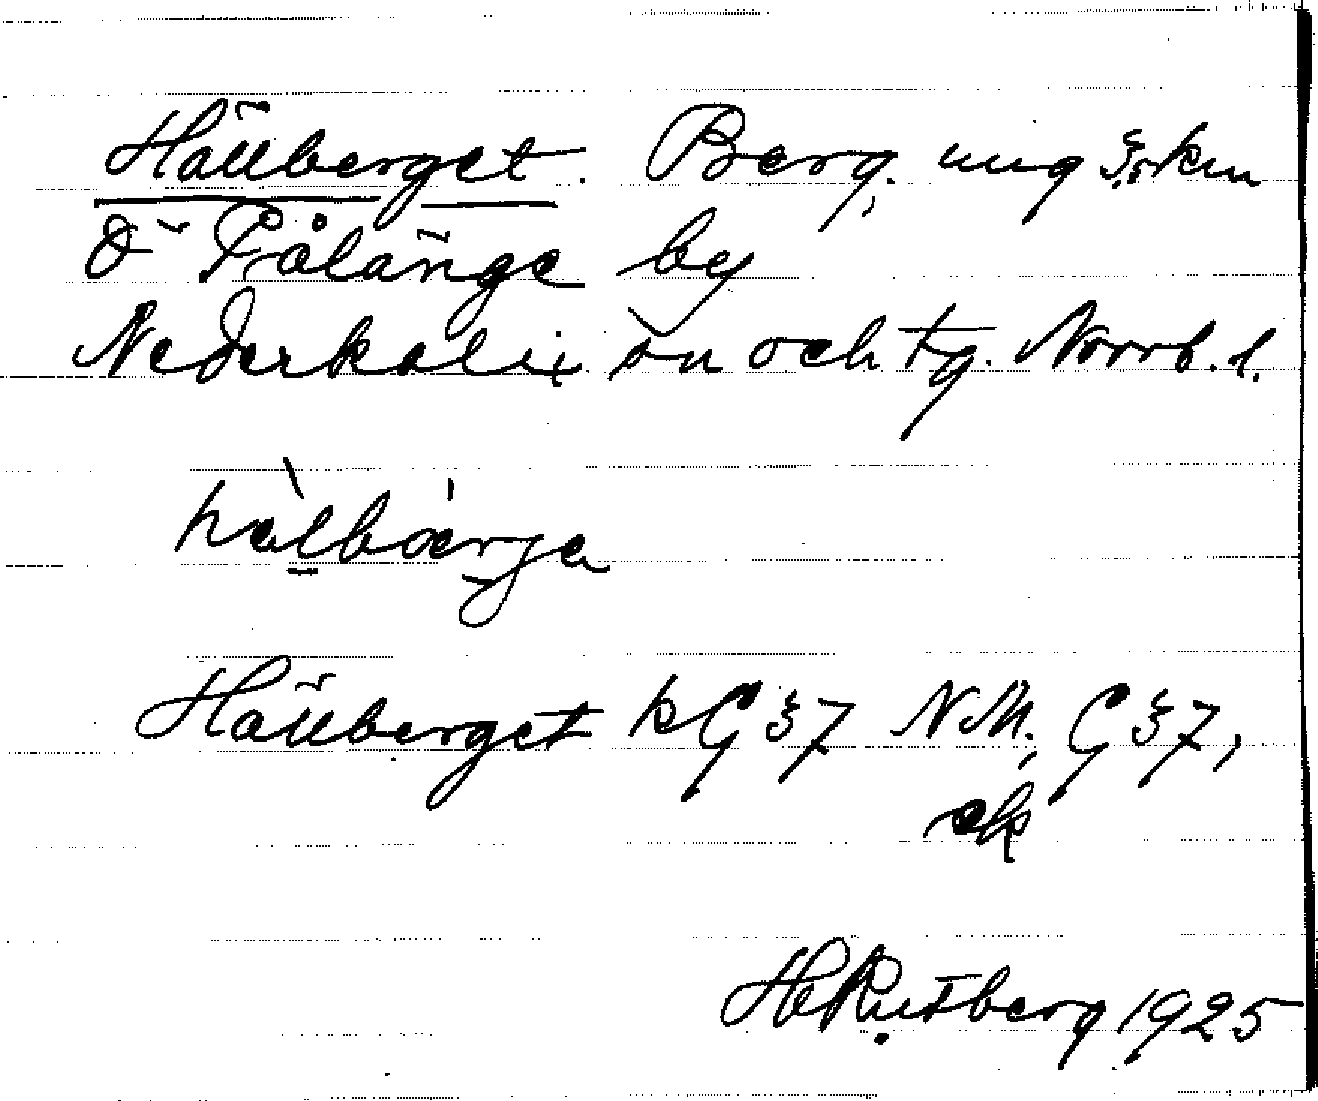 Hällberget. Berg, ung 3,5 km
Ö Pålänge by
Nederkalix sn och tg. Norrb. l.
hàlbærje
Hällberget kG 37 NM, G 37,
ek
H Rutberg 1925